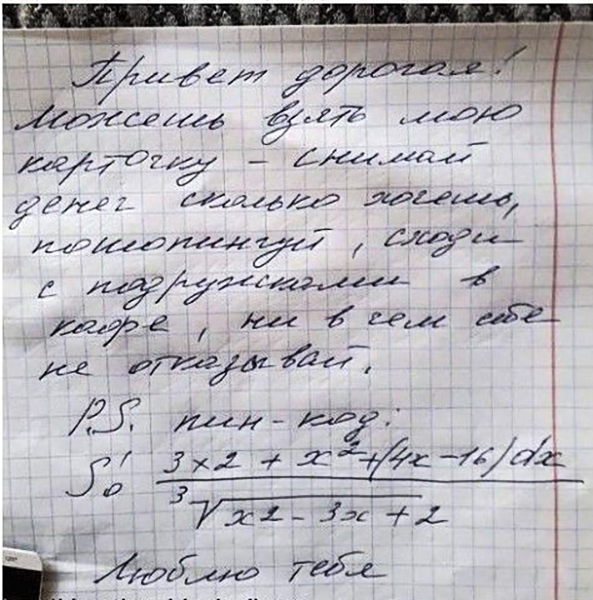 Привет дорогая!
Можешь взять мою
карточку – снимай
денег сколько хочешь,
пошопингуй, сходи
с подружками в
кафе, ни в чем себе
не отказывай.
P.S. пин-код:
∫₀¹ (3x2 + x² + (4x – 16) dx) / ∛(x2 – 3x + 2)
Люблю тебя